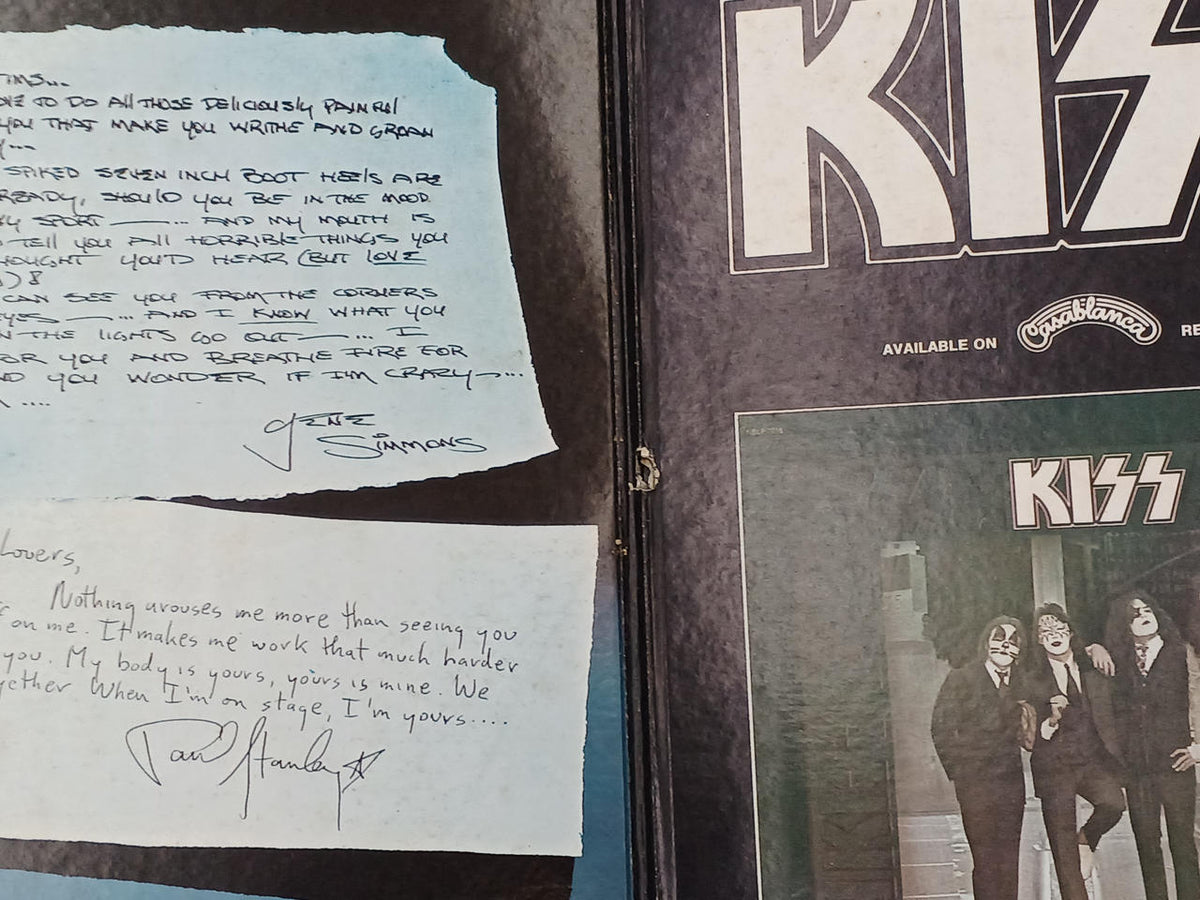 TIMS...
OVE TO DO All THOSE DEliCIOUSly PAINFUl
YOU THAT MAKE YOU WRITHE AND GROAN
SPIKED SEVEN INCH BOOT HEElS ARE
READY, SHOUlD YOU BE IN THE MOOD
SPORT ——... AND MY MOUTH IS
TEll YOU All HORRIBLE THINGS YOU
HOUGHT YOU'D HEAR (BUT LOVE
CAN SEE YOU FROM THE CORNERS
EYES ——... AND I KNOW WHAT YOU
N THE LIGHTS GO OUT ——... I
OR YOU AND BREATHE FIRE FOR
ND YOU WONDER IF I'M CRAZY —...
GENE
SIMMONS
Lovers,
Nothing arouses me more than seeing you
on me. It makes me work that much harder
you. My body is yours, yours is mine. We
gether When I'm on stage, I'm yours....
Paul Stanley
KISS
AVAILABLE ON Casablanca RE
KISS